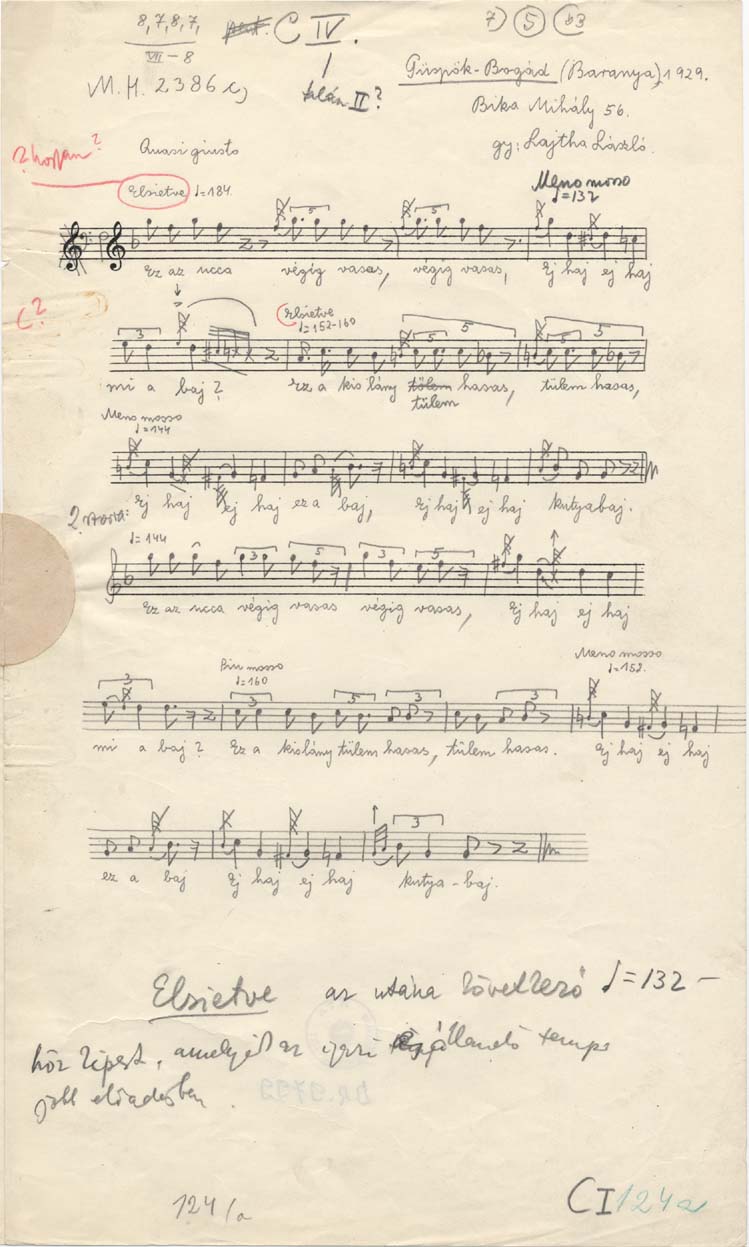 8, 7, 8, 7, C IV. 7) 5 b3
VII-8
M.H. 2386 c)
talán II?
Püspök-Bogád (Baranya) 1929.
Bika Mihály 56.
gy: Lajtha László.
Quasi giusto
Elsietve ♩=184.
Meno mosso
♩=132
5 5
Ez az ucca végig vasas, végig vasas, Ej haj ej haj
C?
Elsietve
♩=152-160
3 3 5 3 5
mi a baj? Ez a kis lány tőlem hasas, tülem hasas,
tülem
Meno mosso
♩=144
Ej haj ej haj ez a baj, Ej haj ej haj kutyabaj.
♩=144
3 5 3 5
Ez az ucca végig vasas végig vasas, Ej haj ej haj
Piu mosso
♩=160
Meno mosso
♩=152.
3 3 3 3 3
mi a baj? Ez a kislány tülem hasas, tülem hasas. Ej haj ej haj
3
ez a baj Ej haj ej haj kutya-baj.
Elsietve az utána következő ♩=132 –
höz képest, amelyik az igazi állandó tempo
jobb előadásban.
124/a
CI 124a